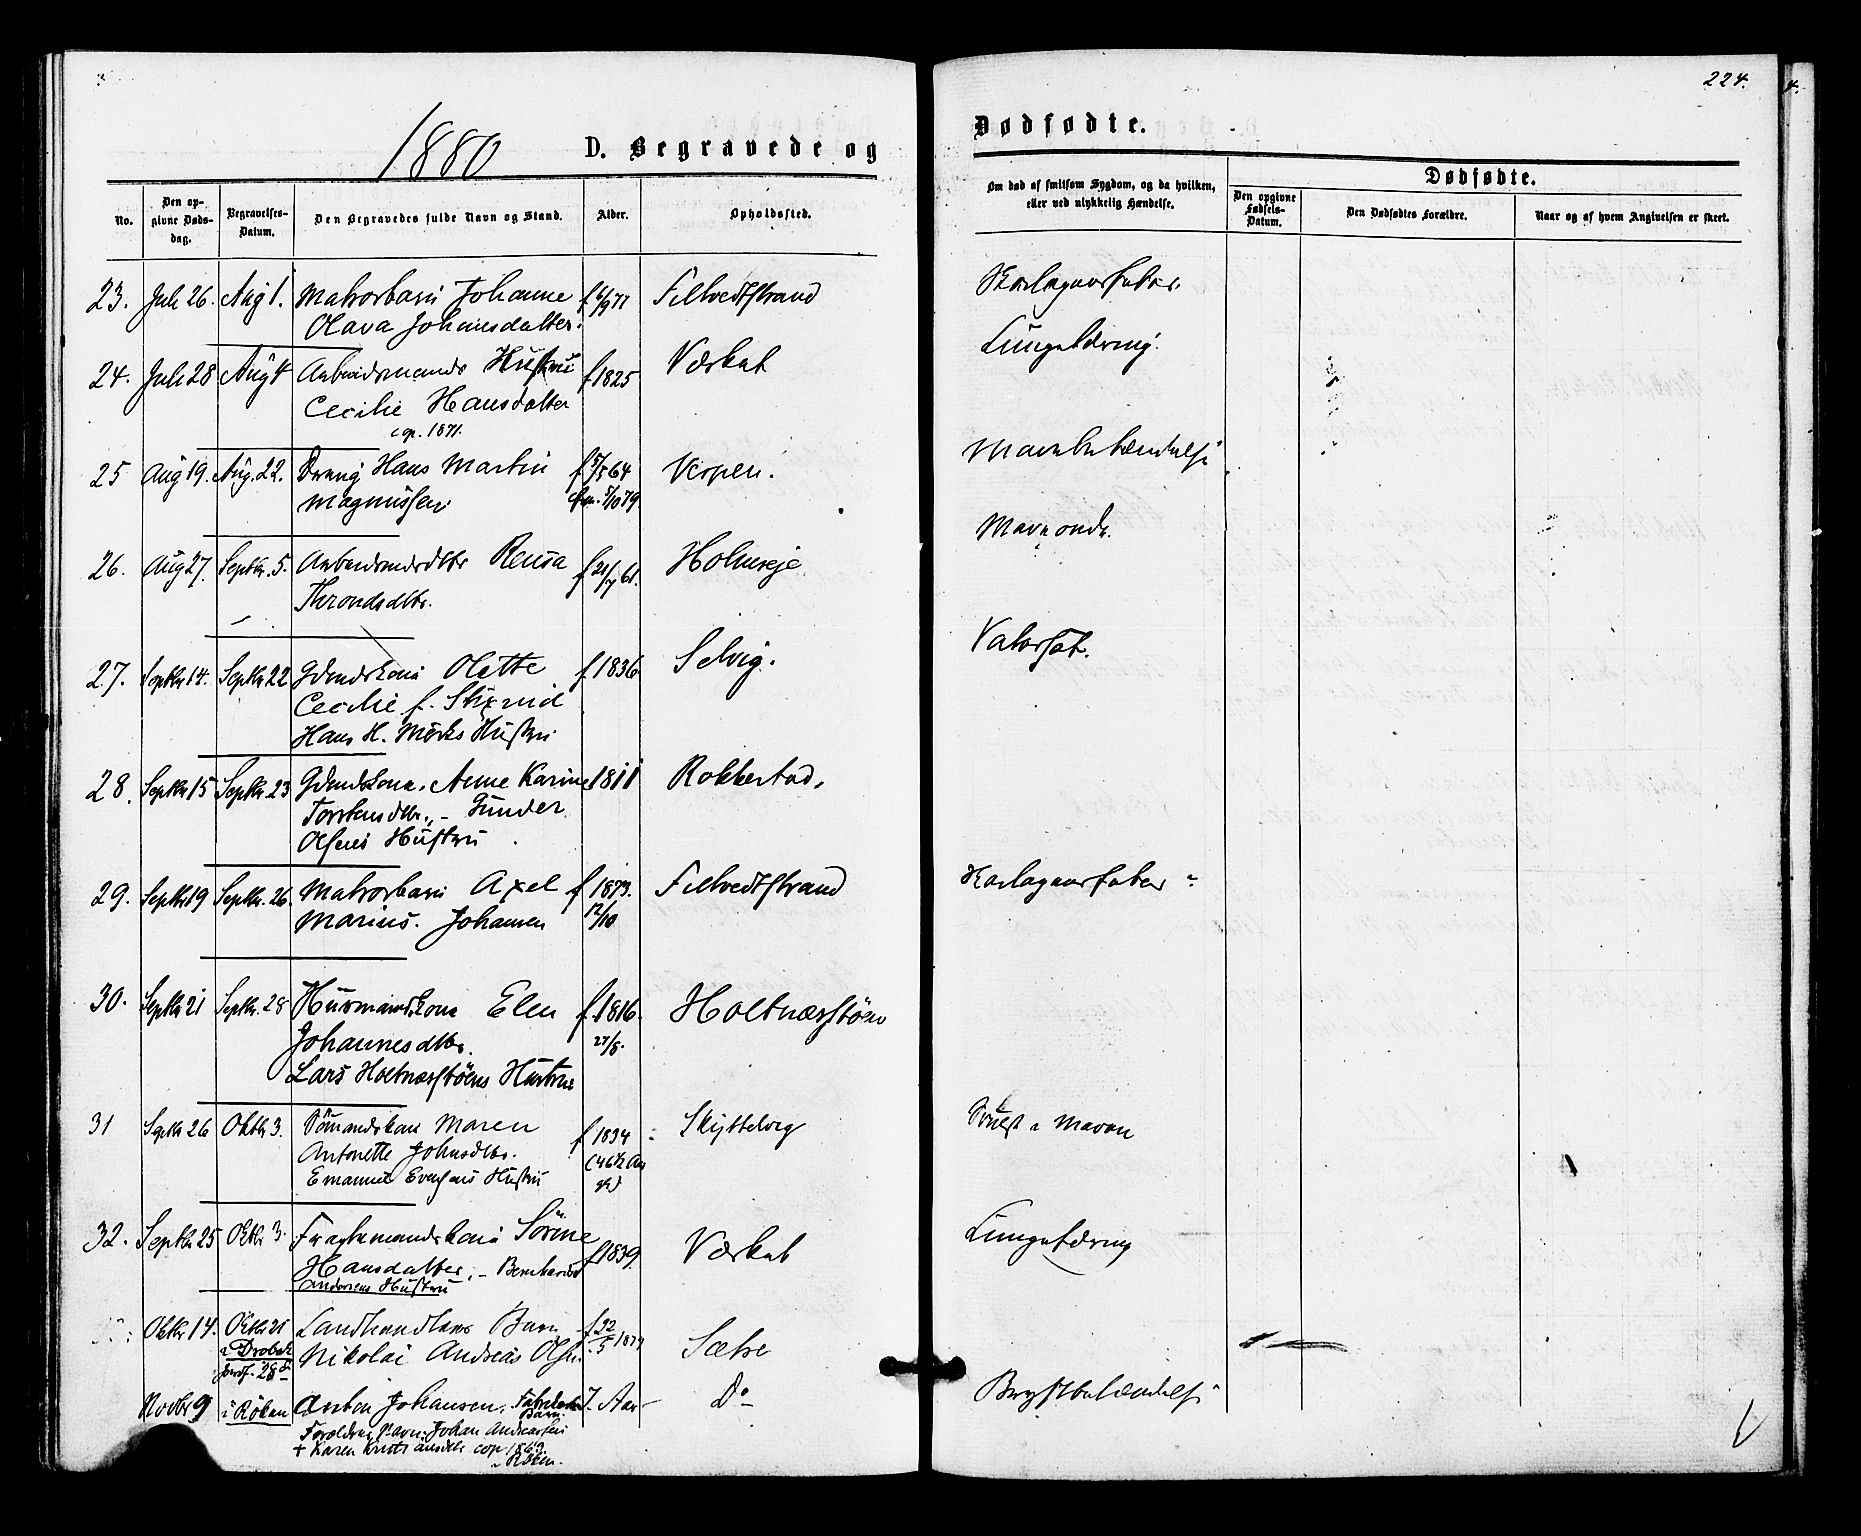 224.
4.
1880
D. Begravede og
Dødfødte.
No.
Den opgivne Dødsdag.
Begravelses-Datum.
Den Begravedes fulde Navn og Stand.
Alder.
Opholdssted.
Om død af smitsom Sygdom, og da hvilken, eller ved ulykkelig Hændelse.
Dødfødte.
Den opgivne Fødsels-Datum.
Den Dødfødtes Forældre.
Naar og af hvem Angivelsen er skeet.
23. Juli 26. Aug 1. Matrosbarn Johanne f 6/9 77 Filtvedtstrand Skarlagensfeber.
Olava Johansdatter.
24. Juli 28 Aug 4 Arbeidsmands Hustru f 1825 Værket Lungetæring.
Cecilie Hansdatter
cop. 1871.
25 Aug 19. Aug. 22. Dreng Hans Martin f 5/5 64 Verpen. Mavebetændelse
Magnussen 5/10 79.
26. Aug 27. Septbr. 5. Rensa f 21/7 61. Holmseje Maveonde.
Throndsdtr.
27. Septbr 14. Septbr 22 Gdmdskone Olette f. 1836 Selvig. Vatersot.
Cecilie f.
Hans H. Mørks Hustru
28. Septbr 15 Septbr 23 Gdmdskone. Anne Karine 1811 Rokkestad.
Torstensdtr., – Gunder
Olsens Hustru
29. Septbr 19 Septbr. 26. Matrosbarn Axel f 1873. Filtvedtstrand Skarlagensfeber
Marius. Johansen 12/10
30. Septbr 21 Septbr. 28 Husmandskone Elen f. 1816. Holtnæsstøen
Johannesdtr. 27/8.
Lars Holtnæsstøens Hustru
31 Septbr 26 Oktbr 3. Sømandskone Maren f 1834 Skjøttelvig Svulst i Maven
Antonette Johnsdtr. (46½ Aar
Emanuel Evensens Hustru gl)
32. Septbr 25 Oktbr 3. Fragtemandskone Sørine f 1839. Værket Lungetæring
Hansdatter, – Bernhard
Andersens Hustru
Oktbr 14. Oktbr 21 Landhandlers Barn f. 22/5 1879 Sætre
i Drøbak Nikolai Andreas Olsen
jordf. 28d
Novbr 9 i Røken Anton Johansen, 7 Aar – Do – Brystbetændelse
Barn.
Forældres Navn: Johan Andreassen
+ Karen Kristiansdtr cop 1869.
i Røken.